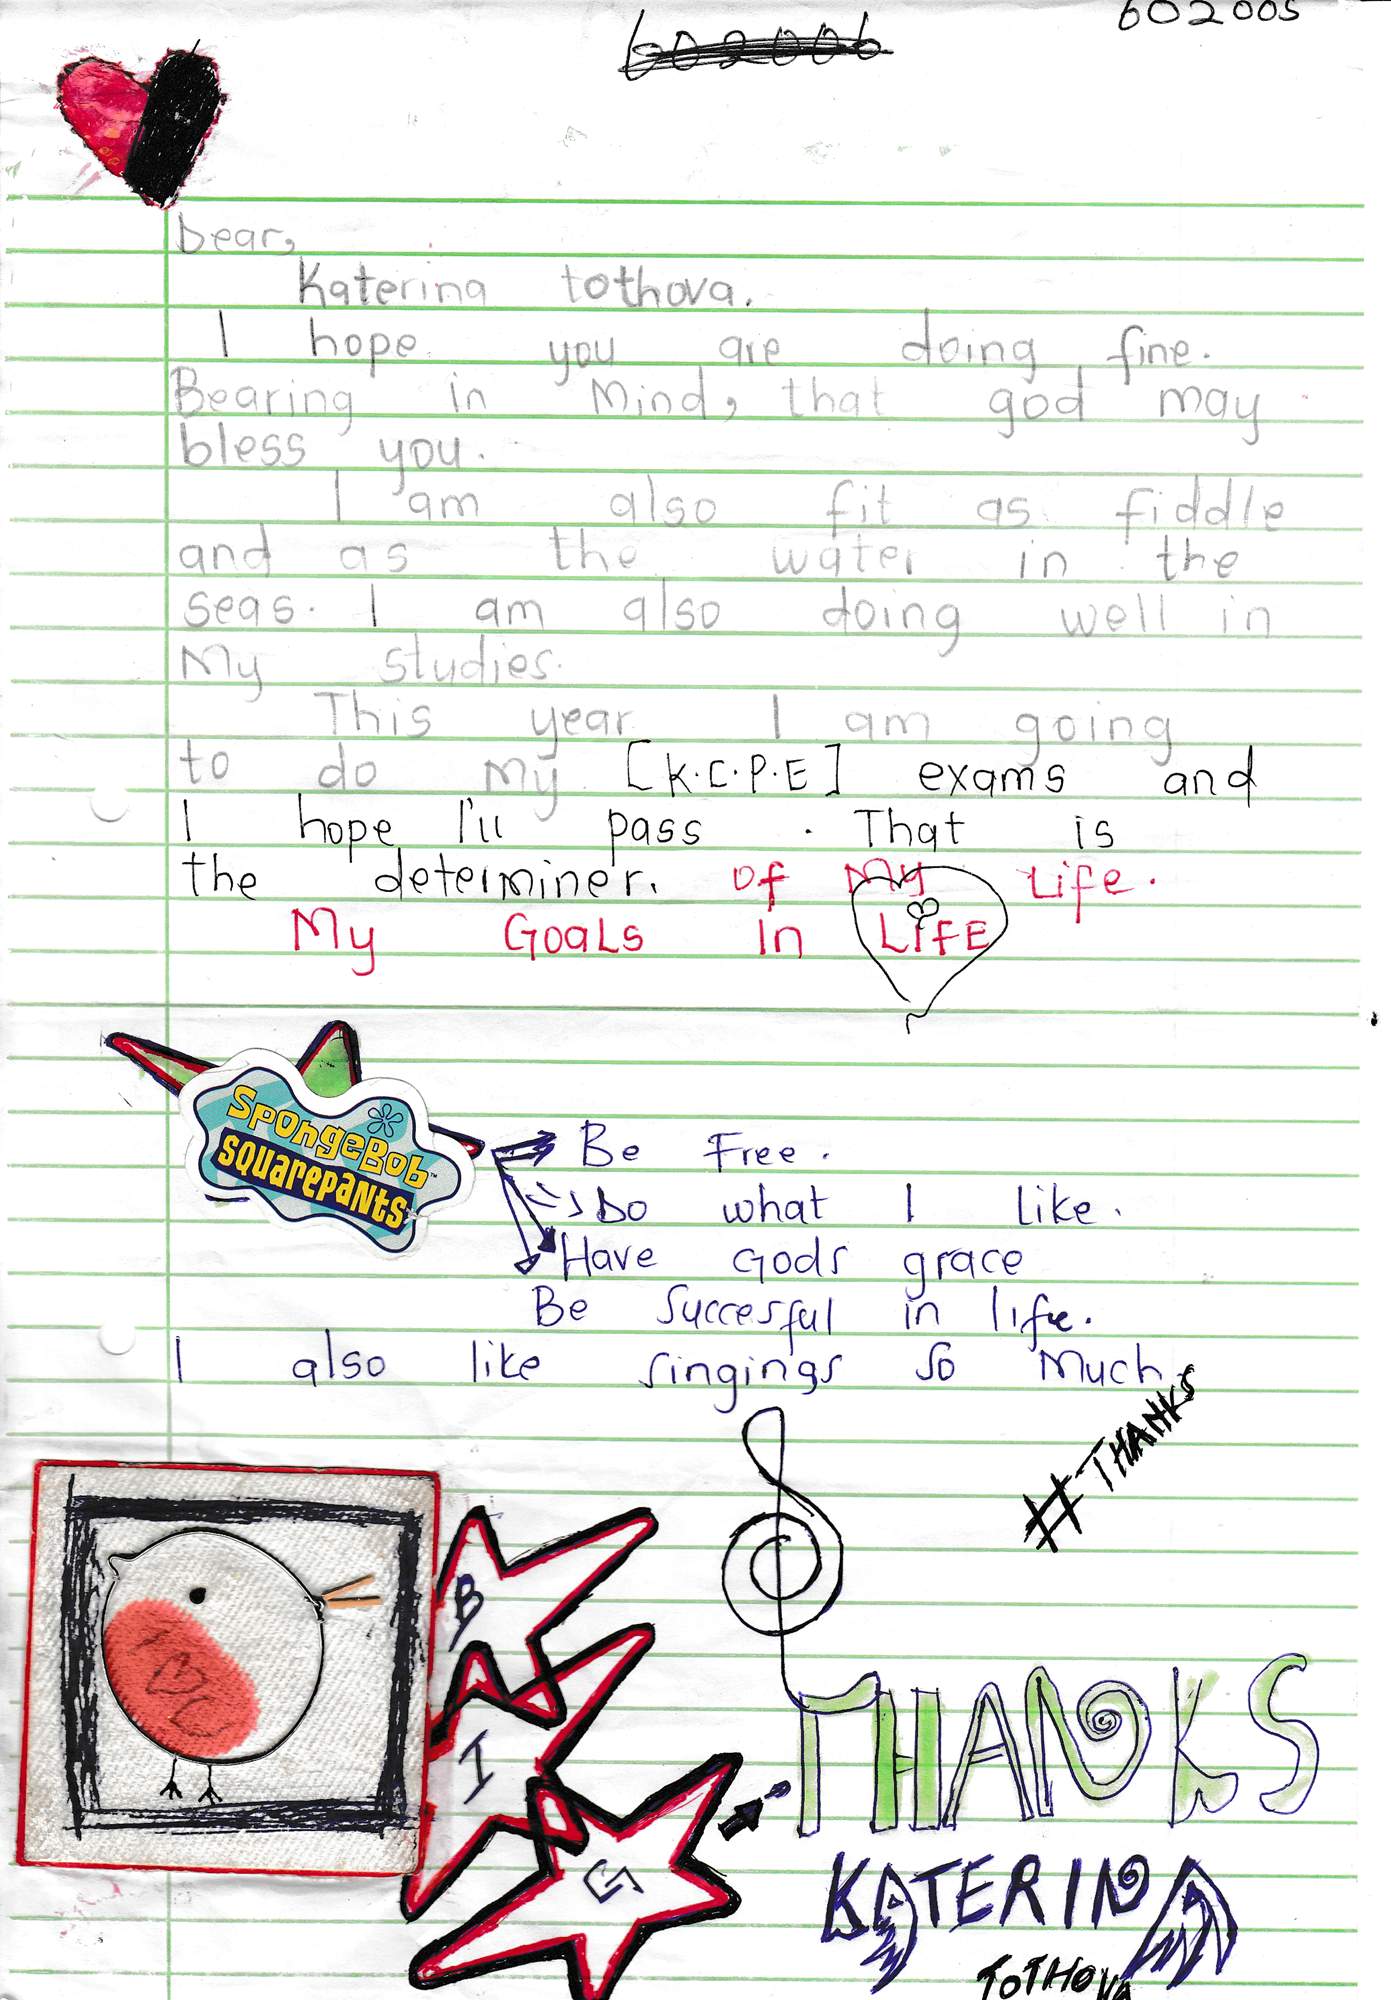 602006
602005
Dear,
Katerina tothova.
I hope you are doing fine.
Bearing in Mind, that god may
bless you.
I am also fit as fiddle
and as the water in the
seas. I am also doing well in
My studies.
This year I am going
to do my [K.C.P.E] exams and
I hope I'll pass. That is
the determiner. of My Life.
My Goals In LifE
SpongeBob
SquarePants
Be Free.
Do what I like.
Have Gods grace
Be Succesful in life.
I also like singings so Much
#THANKS
BIG
THANKS
KATERINA
TOTHOVA